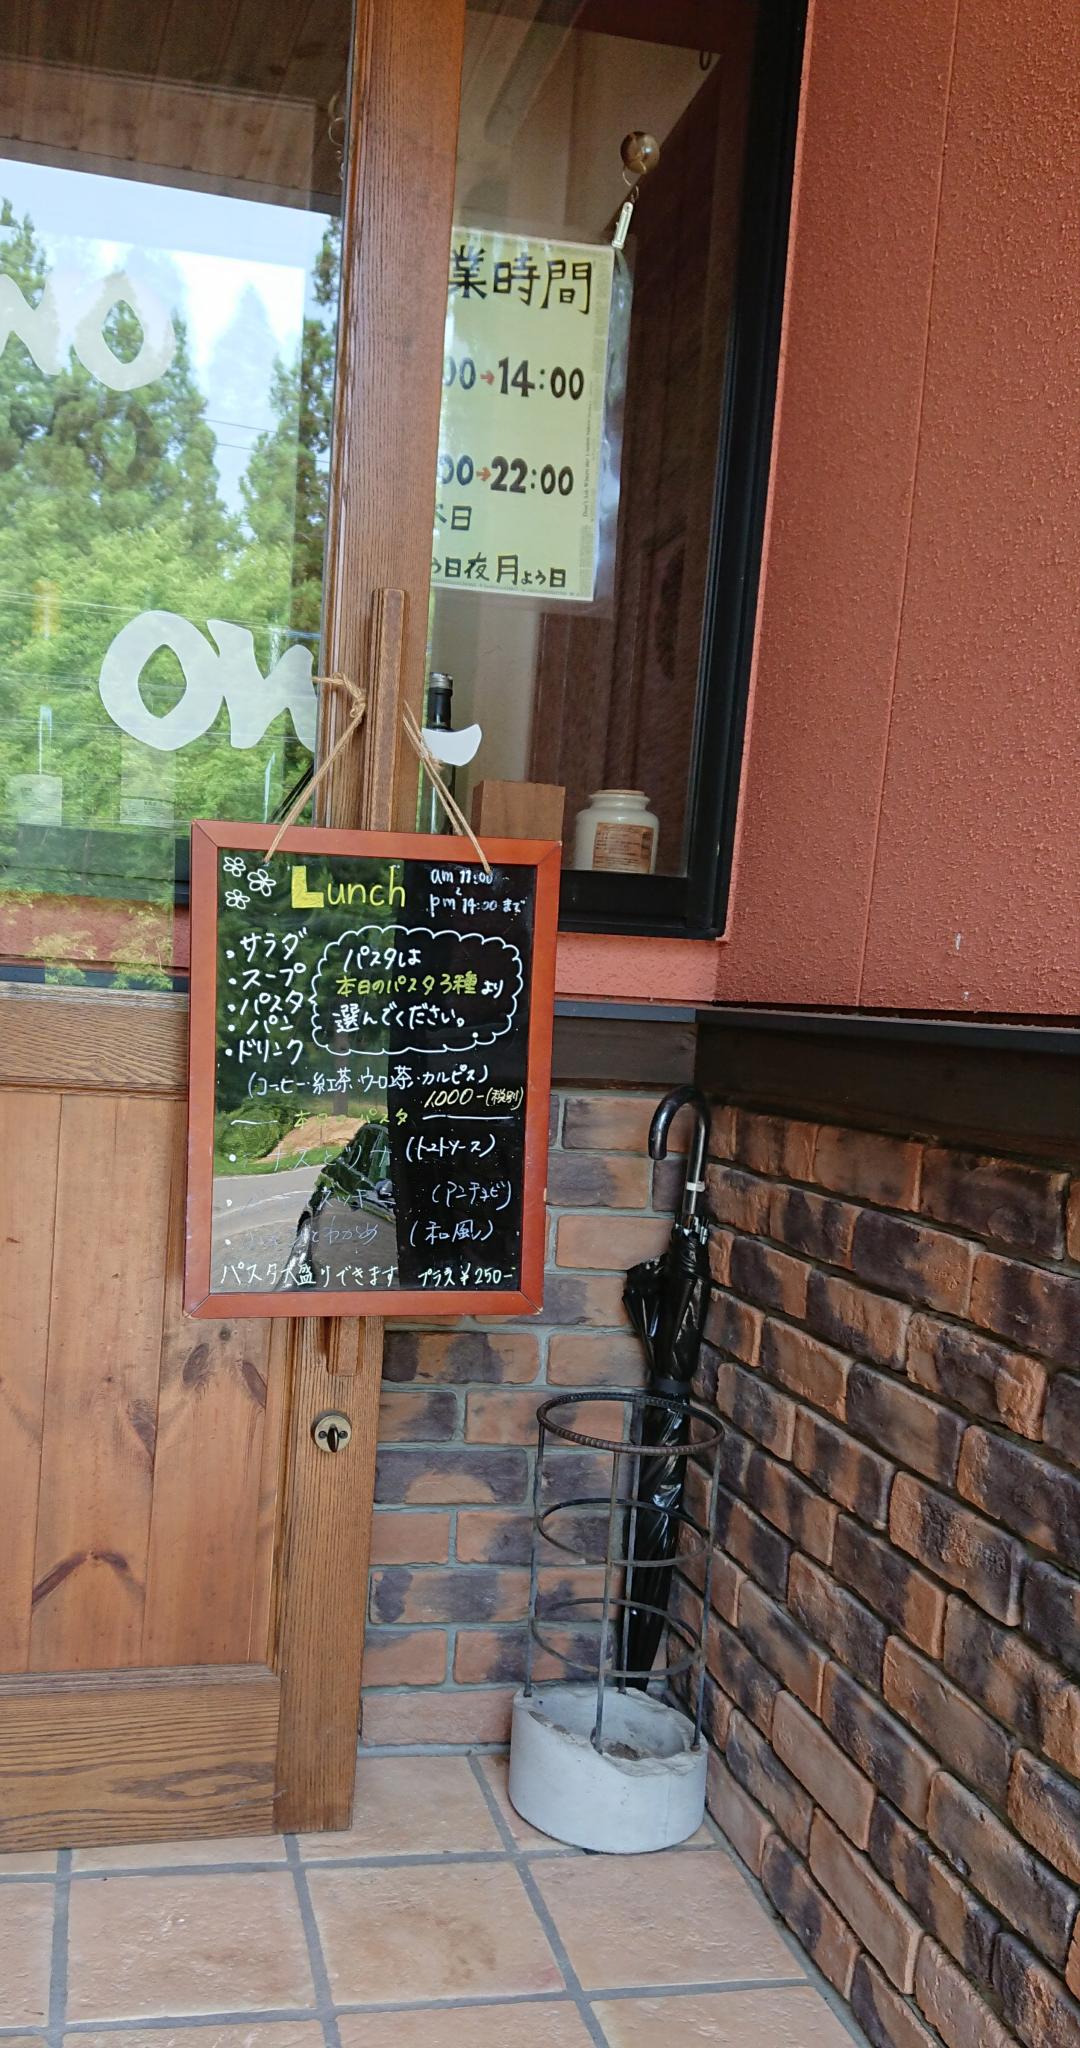 業時間
00→14:00
00→22:00
日
う日夜 月よう日
on
Lunch
am 11:00
pm 14:00 まで
・サラダ
・スープ
・パスタ
・パン
・ドリンク
パスタは
本日のパスタ3種より
選んでください。
(コーヒー・紅茶・ウーロン茶・カルピス)
1,000-(税別)
本日のパスタ
ナスとツナ (トマトソース)
(アンチョビ)
とわかめ (和風)
パスタ大盛りできます プラス¥250-